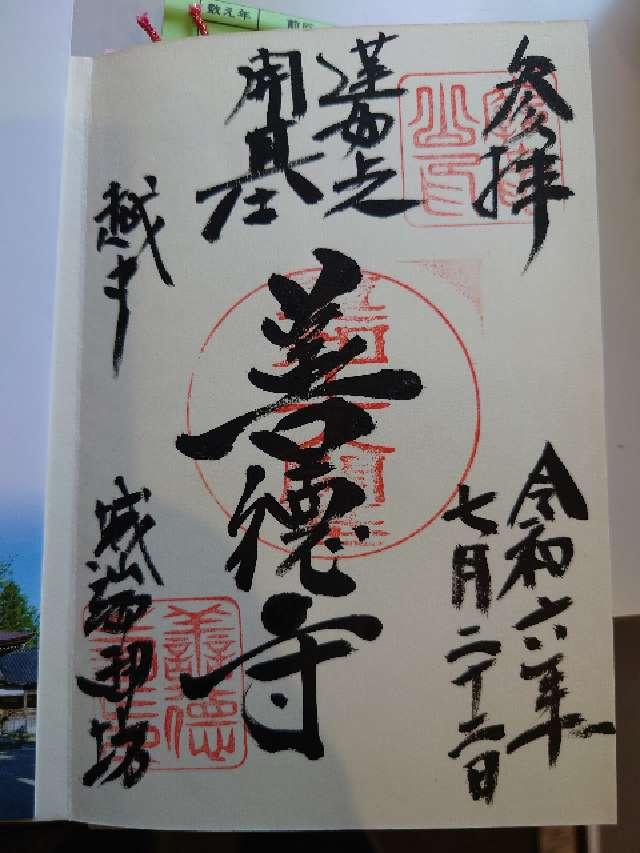 数え年
参拝
令和六年
七月二十六日
蓮如上人
開基
善徳寺
越中
城端御坊